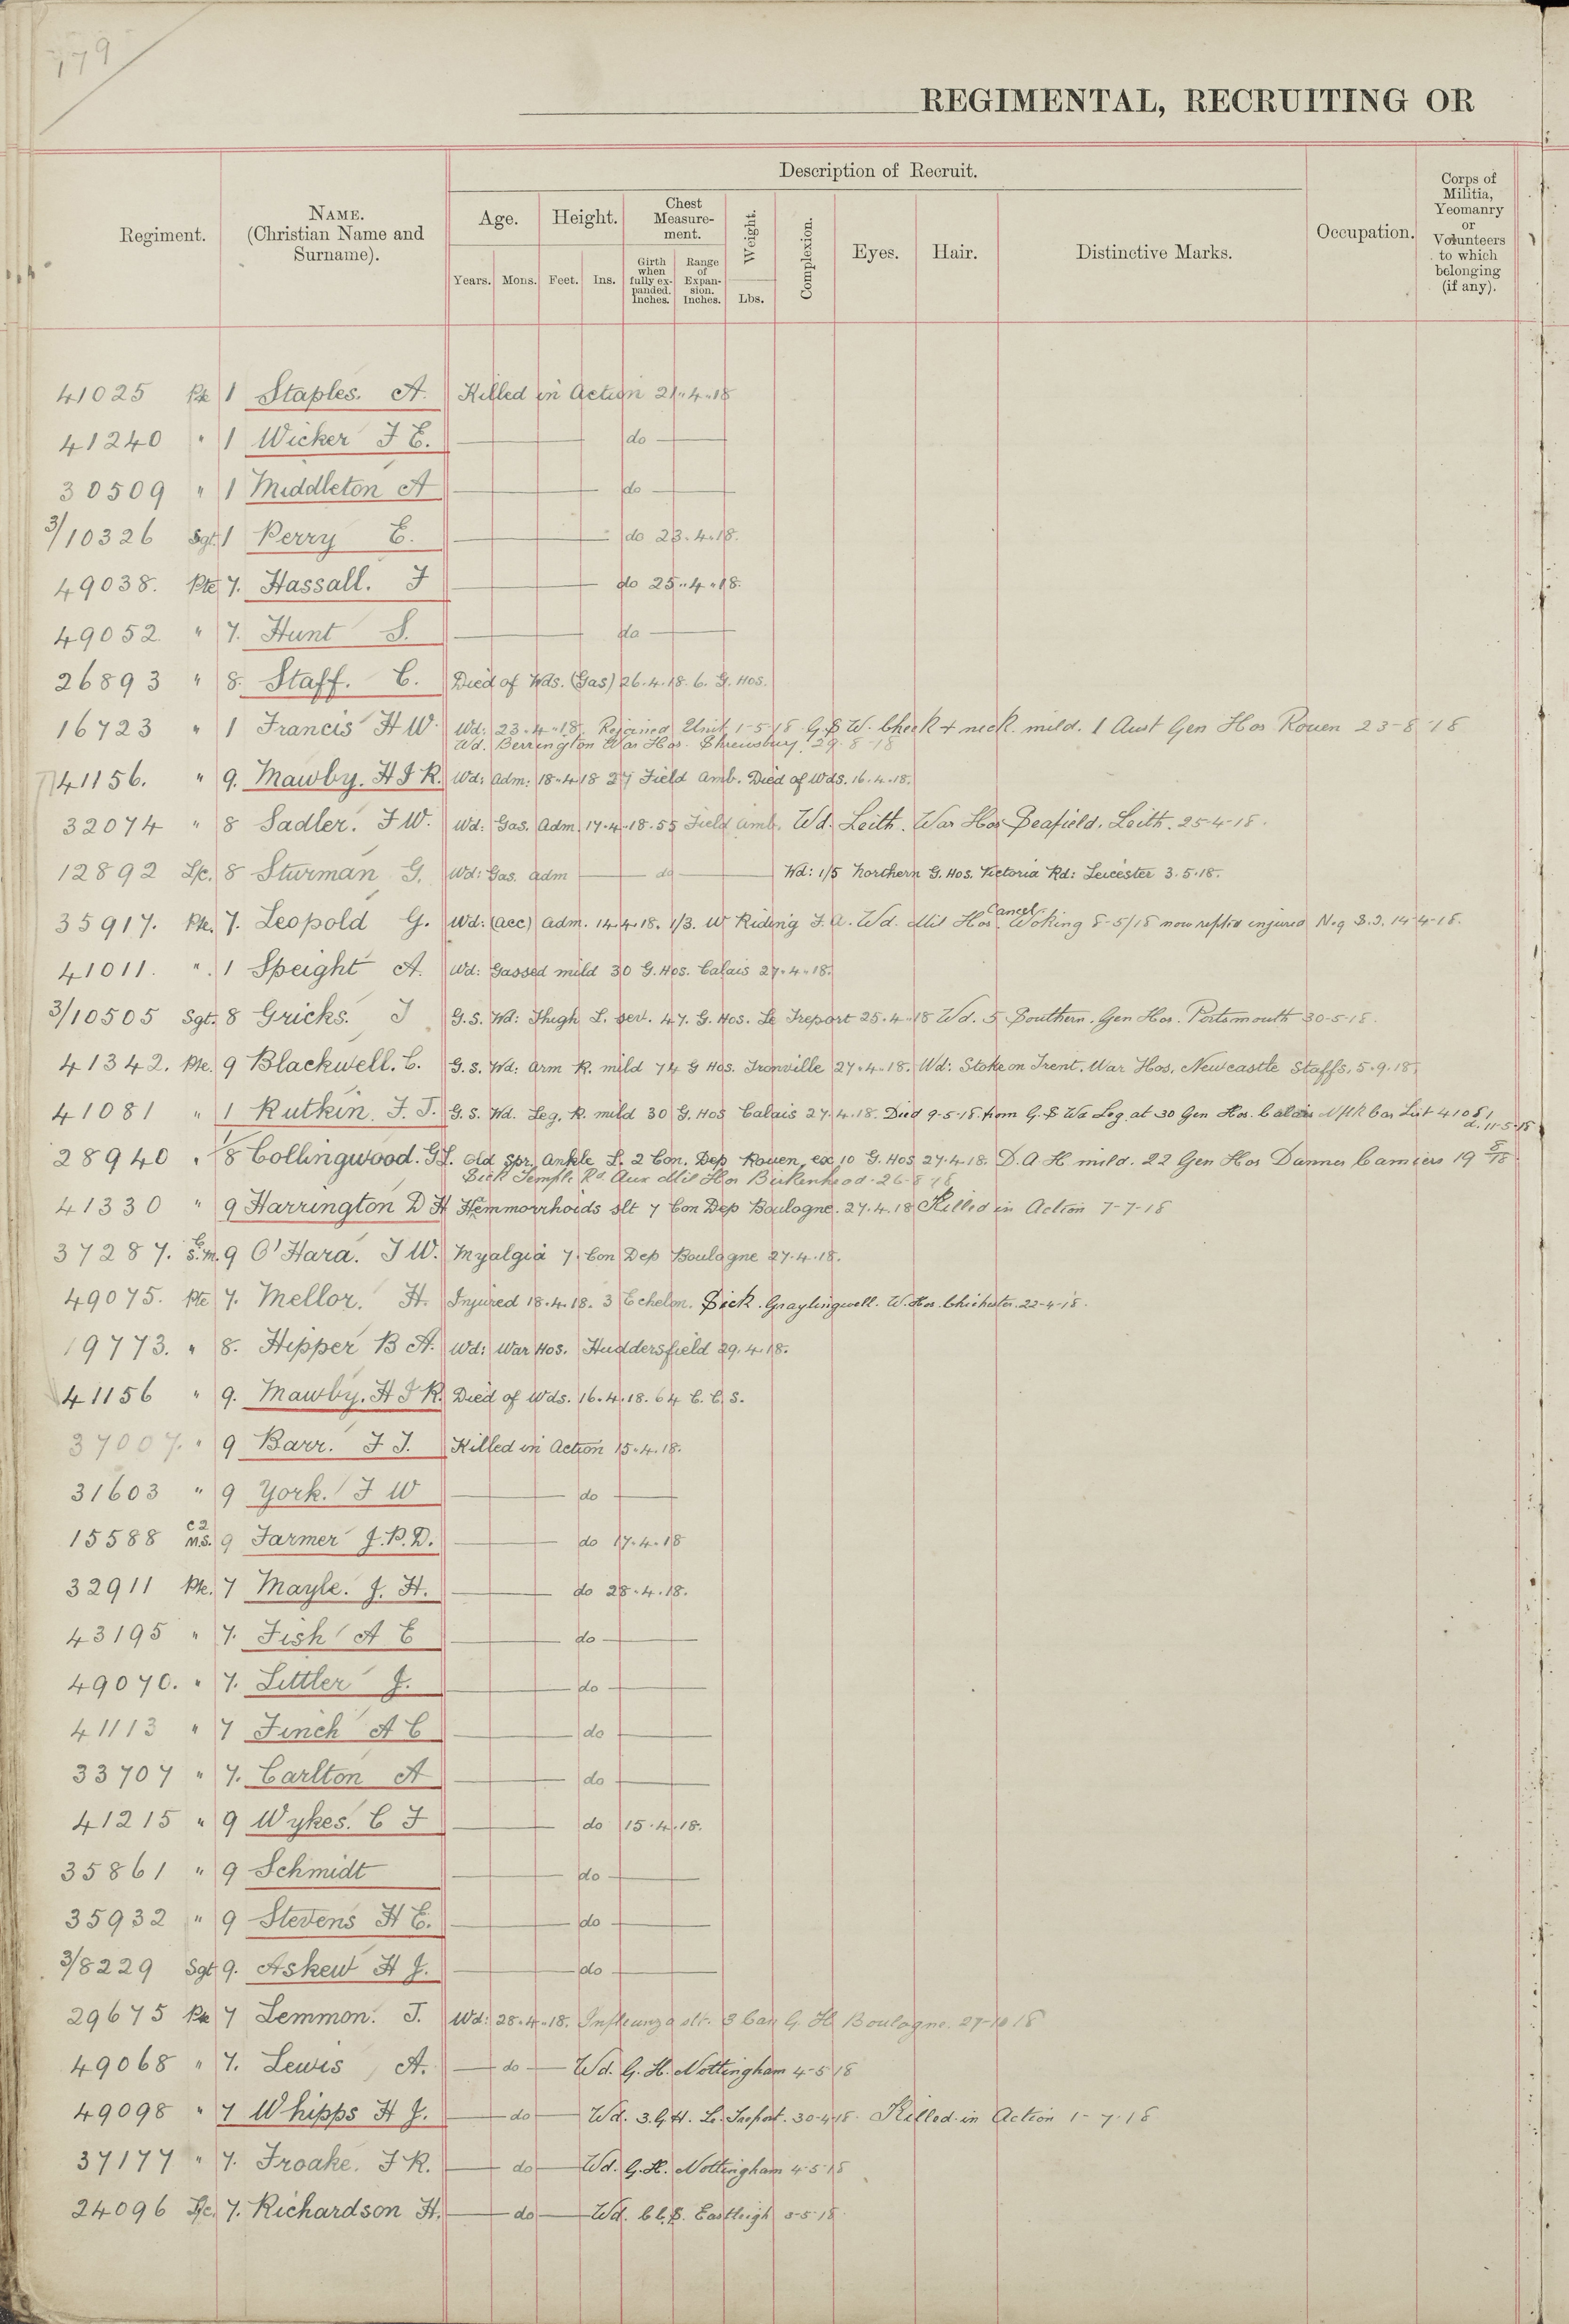 179
REGIMENTAL, RECRUITING OR
Description of Recruit.
Regiment. NAME. (Christian Name and Surname). Age. Height. Chest Measurement. Weight. Complexion. Eyes. Hair. Distinctive Marks. Occupation. Corps of Militia, Yeomanry or Volunteers to which belonging (if any).
Years. Mons. Feet. Ins. Girth when fully expanded. Inches. Range of Expansion. Inches. Lbs.
41025 Pte 1 Staples. A. Killed in Action 21.4.18
41240 " 1 Wicker F E. do
30509 " 1 Middleton A do
3/10326 Sgt. 1 Perry E. do 23.4.18.
49038. Pte 7. Hassall. F do 25.4.18.
49052. " 7. Hunt S. do
26893 " 8. Staff. C. Died of Wds. (Gas) 26.4.18. 6. G. Hos.
16723 " 1 Francis H W. Wd: 23.4.18. Rejoined Unit 1-5-18 G.S W. Cheek + neck. mild. 1 Aust Gen Hos Rouen 23-8-18
Wd. Berrington War Hos. Shrewsbury. 29-8-18
41156. " 9. Mawby. H J R. Wd: Adm: 18.4.18 27 Field Amb. Died of Wds. 16.4.18.
32074 " 8 Sadler. F W. Wd: Gas. Adm. 17.4.18. 55 Field Amb. Wd. Leith. War Hos Seafield. Leith. 25-4-18.
12892 L/c. 8 Sturman G. Wd: Gas. Adm do Wd: 1/5 Northern G. Hos. Victoria Rd: Leicester 3.5.18.
35917. Pte. 7. Leopold G. Wd: (acc) Adm. 14.4.18. 1/3. W Riding F.A. Wd. Mil Hos. Woking 8-5/18 Cancel. now reptd injured N.g S.I. 14-4-18.
41011. " 1 Speight A. Wd: Gassed mild 30 G. Hos. Calais 27.4.18.
3/10505 Sgt. 8 Gricks. J G.S. Wd: Thigh L. sev. 47. G. Hos. Le Treport 25.4.18 Wd. 5 Southern. Gen Hos. Portsmouth 30-5-18.
41342. Pte. 9 Blackwell. C. G.S. Wd: Arm R. mild 74 G Hos. Tronville 27.4.18. Wd: Stoke on Trent. War Hos, Newcastle Staffs. 5.9.18.
41081 " 1 Rutkin. F. J. G.S. Wd. Leg. R. mild 30 G. Hos Calais 27.4.18. Died 9-5-18 from G.S Wd Leg. at 30 Gen Hos. Calais Cas List 41081
d. 11-5-18
28940 " 1/8 Collingwood. G L. Old Spr. Ankle L. 2 Con. Dep Rouen, ex 10 G. Hos 27.4.18. D. A H mild. 22 Gen Hos Dannes Camiers 19 8/18
Sick Temple Rd Aux Mil Hos Birkenhead. 26-8-18
41330 " 9 Harrington D H Hemmorrhoids slt 7 Con Dep Boulogne. 27.4.18 Killed in Action 7-7-18
37287. C.S.M. 9 O'Hara. J W. Myalgia 7. Con Dep Boulogne 27.4.18.
49075. Pte 7. Mellor. H. Injured 18.4.18. 3 Echelon. Sick. Graylingwell. W. Hos. Chichester. 22-4-18.
19773. " 8. Hipper B A. Wd: War Hos. Huddersfield 29.4.18.
41156 " 9. Mawby. H J R. Died of Wds. 16.4.18. 64 C.C.S.
37007. " 9 Barr. F J. Killed in Action 15.4.18.
31603 " 9 York. F W do
15588 C2 M.S. 9 Farmer J.P.D. do 17.4.18
32911 Pte. 7 Mayle. J. H. do 28.4.18.
43195 " 7. Fish A E do
49070. " 7. Littler J. do
41113 " 7 Finch A C do
33707 " 7. Carlton A do
41215 " 9 Wykes. C F do 15.4.18.
35861 " 9 Schmidt do
35932 " 9 Stevens H E. do
3/8229 Sgt 9. Askew H J. do
29675 Pte 7 Lemmon. T. Wd: 28.4.18. Influenza slt. 3 Can G. H Boulogne. 27-10-18
49068 " 7. Lewis A. do Wd. G. H. Nottingham 4-5-18
49098 " 7 Whipps H J. do Wd. 3. G H. Le Treport. 30-4-18. Killed in Action 1-7-18
37177 " 7. Froake. F R. do Wd. G. H. Nottingham 4-5-18
24096 L/c. 7. Richardson H. do Wd. C C.S. Eastleigh 3-5-18.